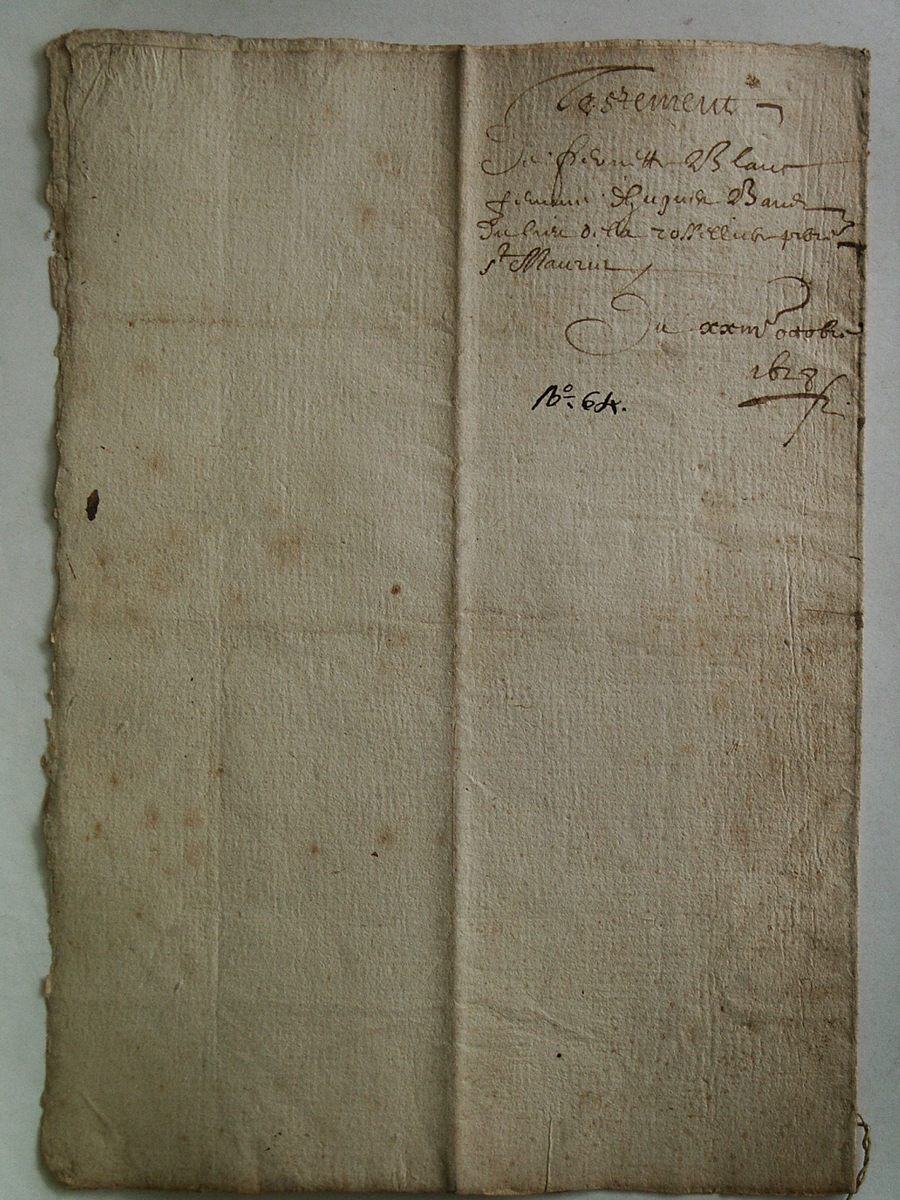 Testement
De pernette Blanc
femme d'huguet Baud
du lieu de la
st Maurice
Du xxiii octobre
1628
No. 64.